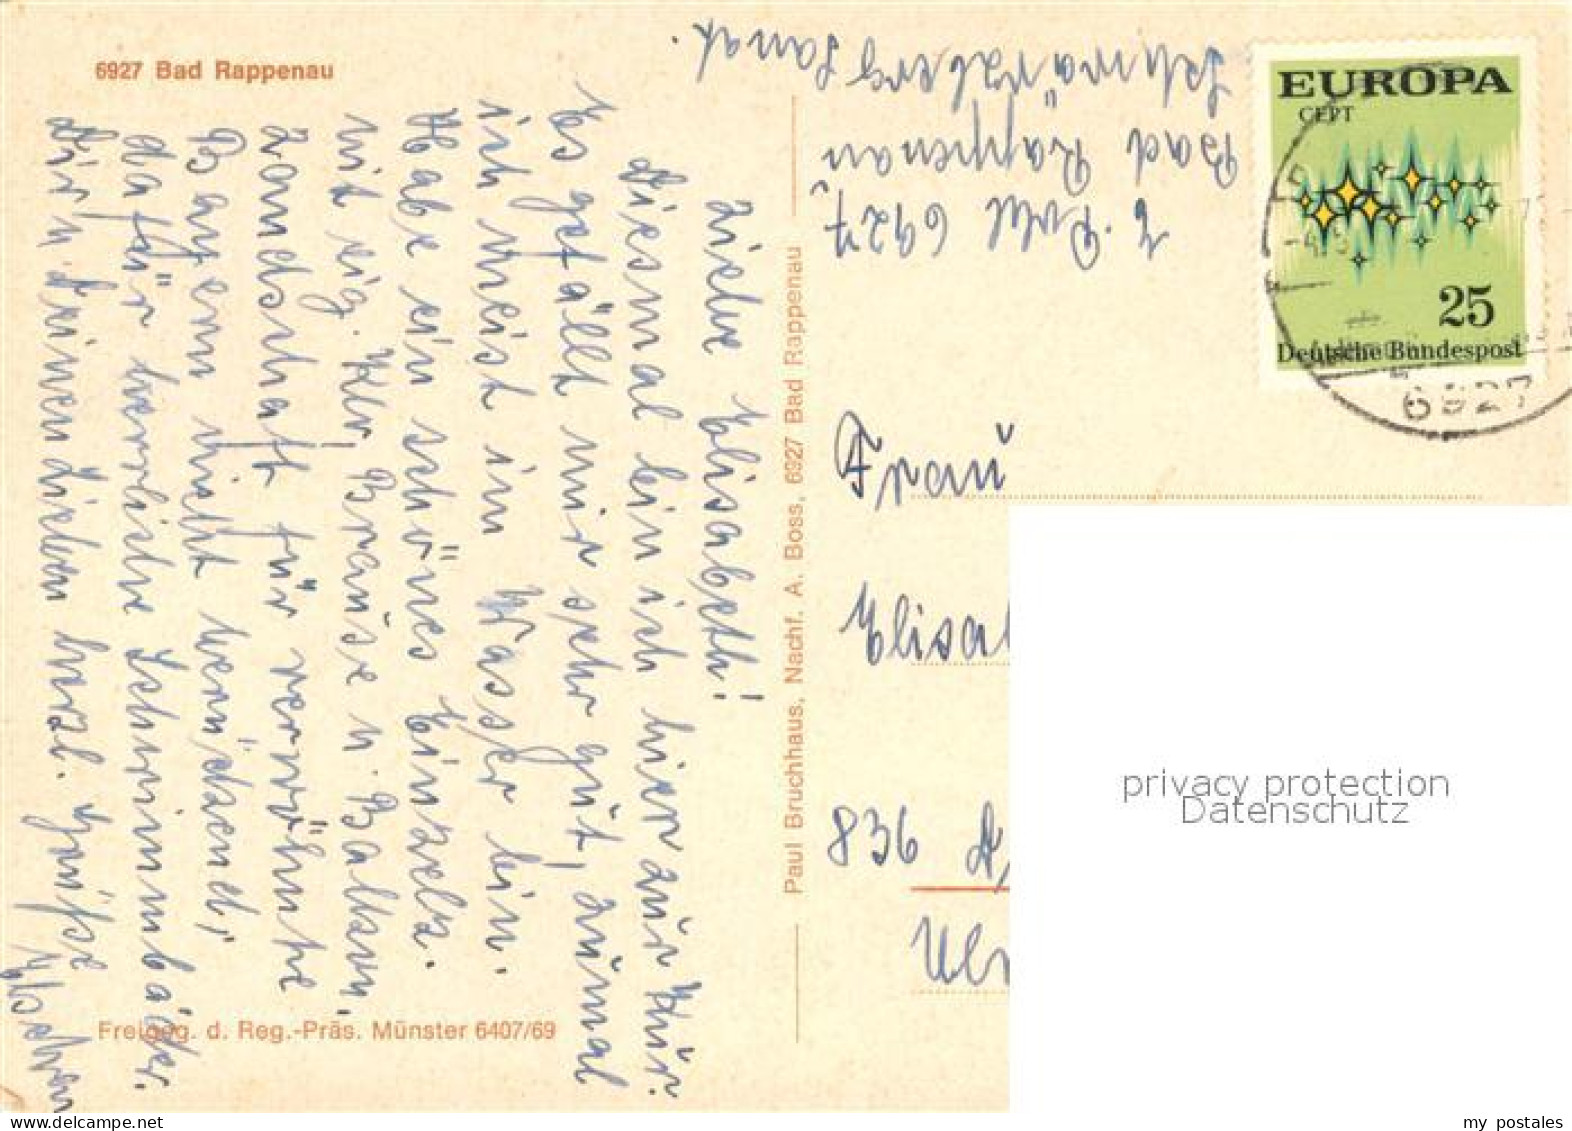 6927 Bad Rappenau
Liebe Elisabeth!
Diesmal bin ich hier zur Kur.
Es gefällt mir sehr gut, zumal
ich meist im Wasser bin.
Habe ein schönes Einzelz.
mit eig. Klo, Brause u. Balkon,
Landschaft für verwöhnte
Bayern nicht berückend,
dafür herrliche Schwimmbäder.
Dir u. Deinen Lieben herzl. Grüße
z. Zt. 6927
Bad Rappenau
Schwärzberg Sanat.
Paul Bruchhaus, Nachf. A. Boss, 6927 Bad Rappenau
Freigeg. d. Reg.-Präs. Münster 6407/69
EUROPA
CEPT
25
Deutsche Bundespost
6927
Frau
Elisab
836
privacy protection
Datenschutz
my postales